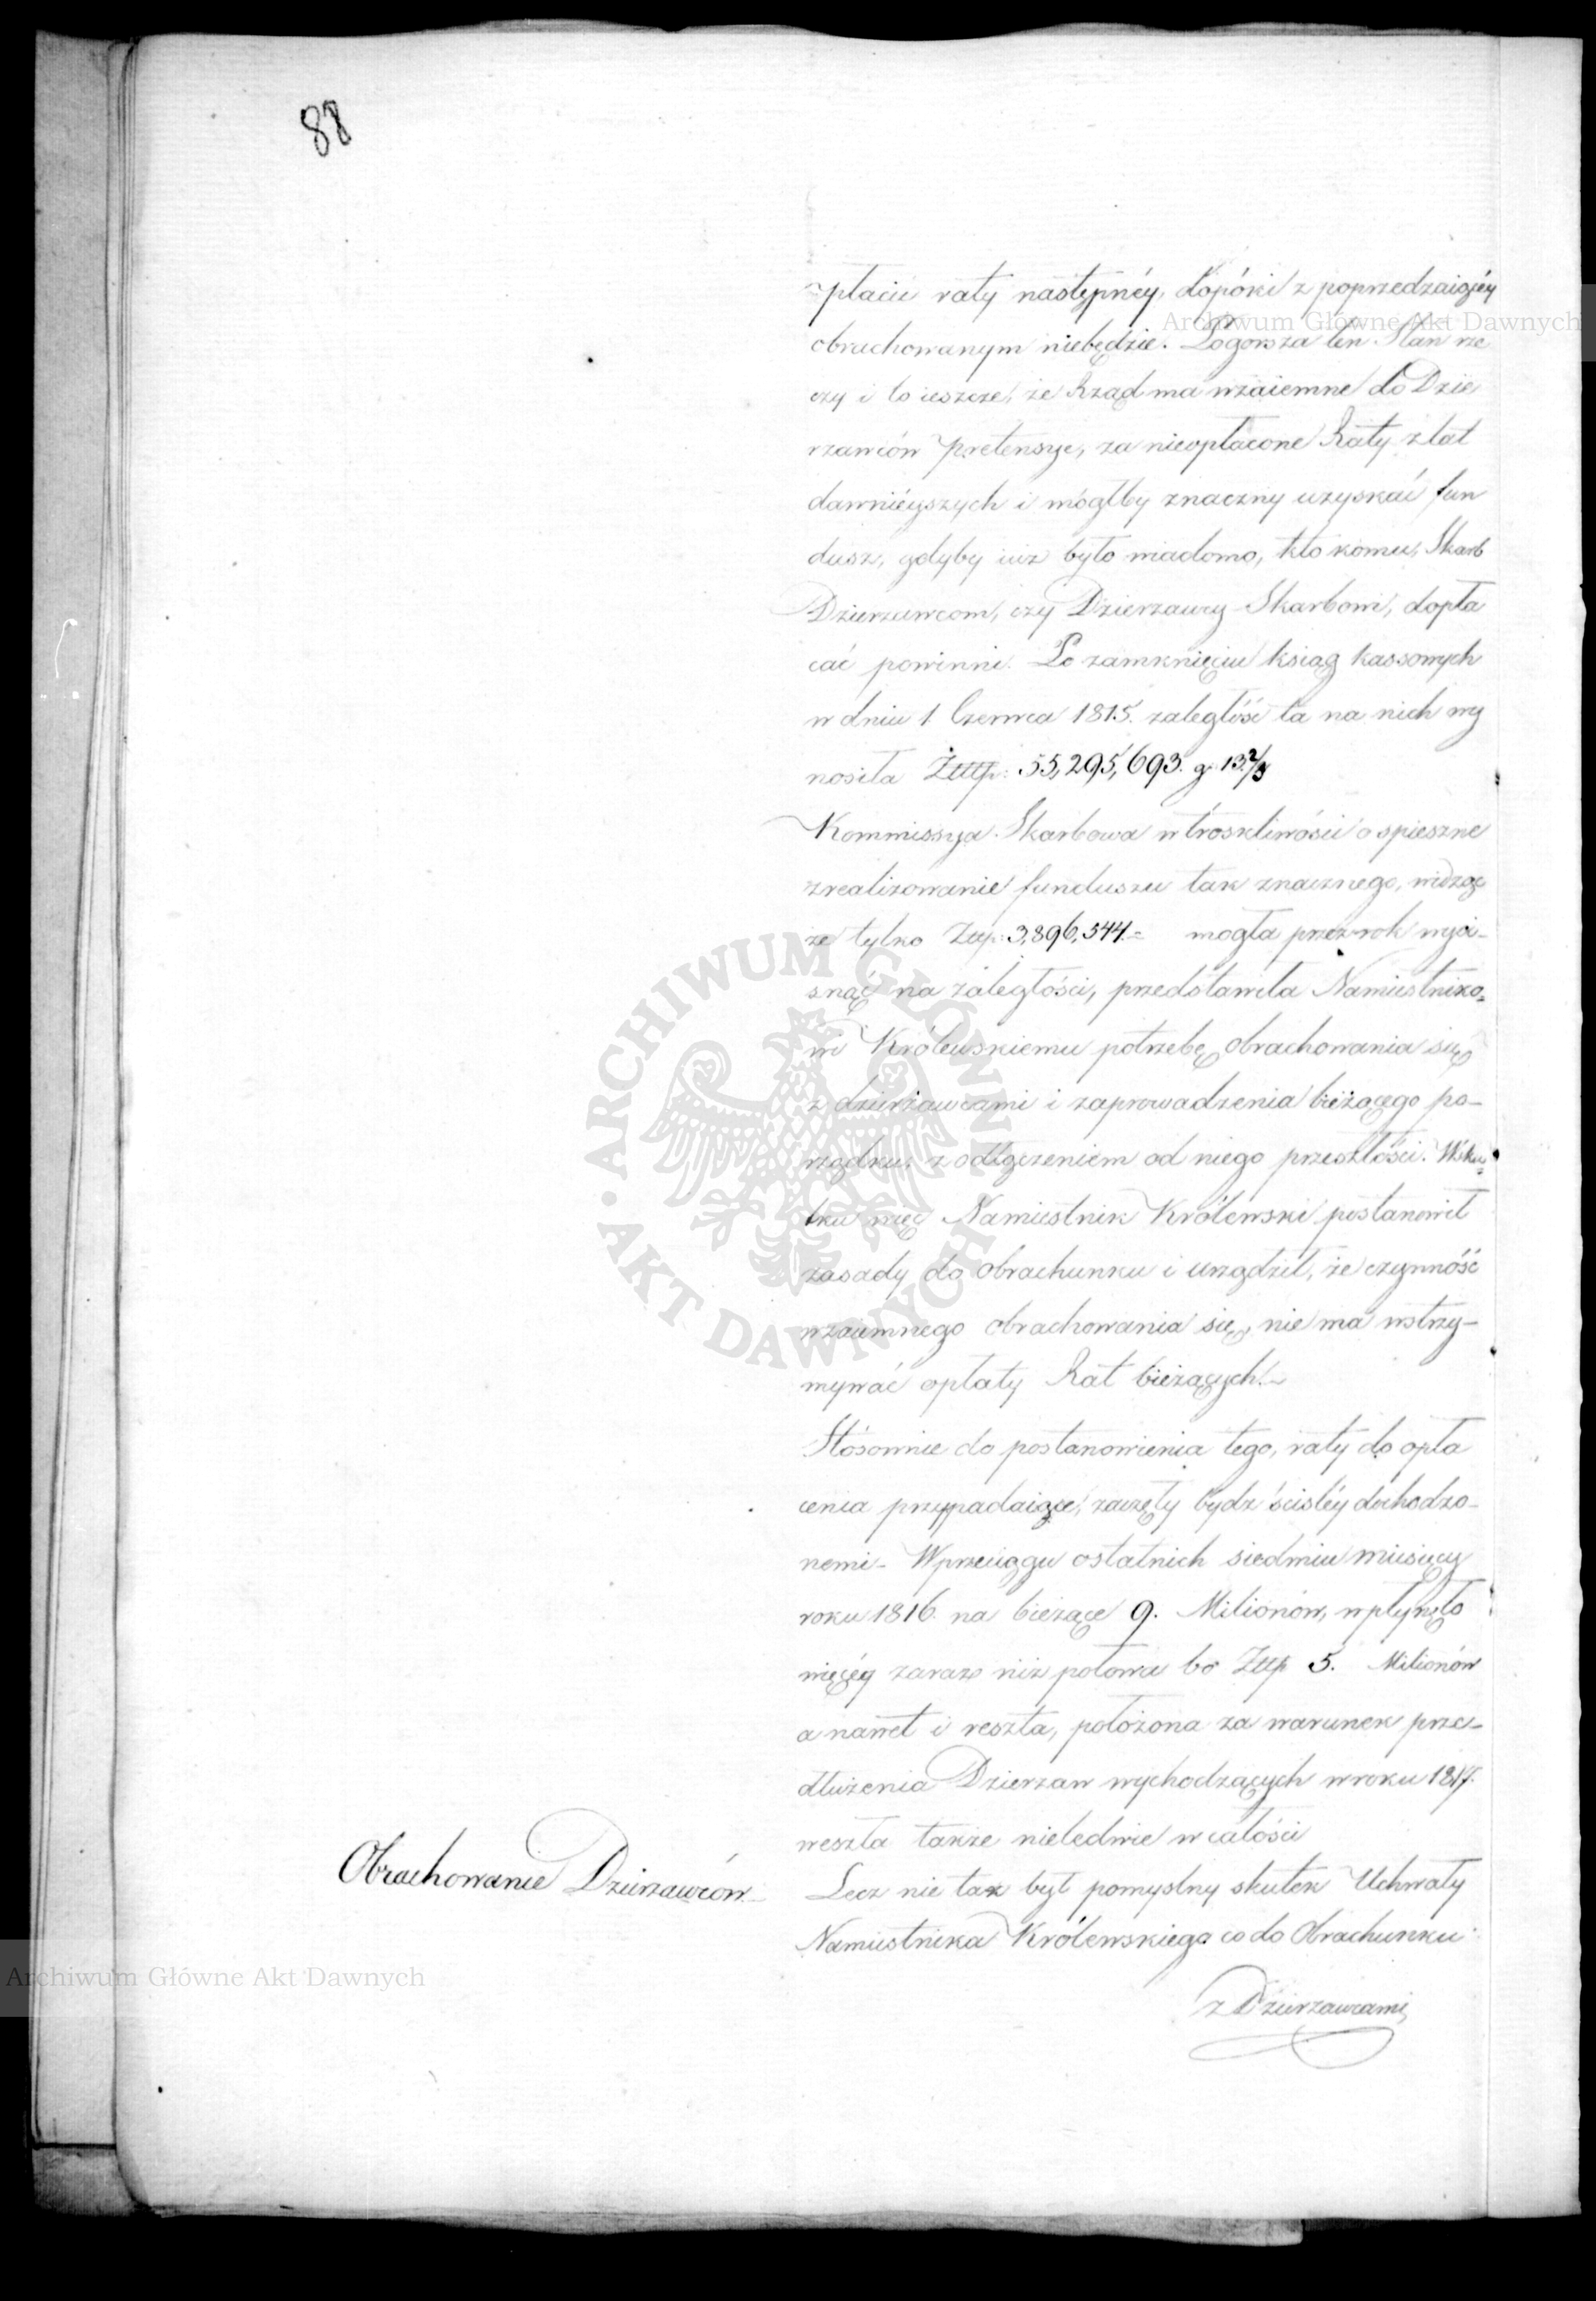 88
płacić raty następnéy, dopóki z poprzedzaiącéy
obrachowanym niebędzie. Pogorsza ten Stan rze
czy i to ieszcze, że Rząd ma wzaiemne do Dzie
rzawców pretensye, za nieopłacone Raty z lat
dawnieyszych i mógłby znaczny uzyskać fun
dusz, gdyby iuż było wiadomo, kto komu, Skarb
Dzierzawcom, czy Dzierzawcy Skarbowi, dopła
cać powinni. Po zamknięciu ksiąg kassowych
w dniu 1 Czerwca 1815. zaległość ta na nich wy
nosiła Złłłp: 55,295,693. gr 13 2/3
Kommissya Skarbowa w troskliwości o spieszne
zrealizowanie funduszu tak znacznego, widząc
że tylko Złłp: 3,896,544.= mogła przez rok wyci-
snąć na zaległości, przedstawiła Namiestniko=
wi Królewskiemu potrzebę obrachowania się
z dzierżawcami i zaprowadzenia bieżącego po-
rządku, z odłączeniem od niego przeszłości. Wsku=
tku więc Namiestnik Królewski postanowił
zasady do obrachunku i urządził, że czynność
wzaiemnego obrachowania się, nie ma wstrzy-
mywać opłaty Rat bieżących.-
Stósownie do postanowienia tego, raty do opła
cenia przypadaiące, zaczęły bydz ściśléy dochodzo-
nemi - Wprzeciągu ostatnich siedmiu miesięcy
roku 1816. na bieżące 9. Milionów, wpłynęło
więcéy zaraz niż połowa bo Złłp 5. Milionów
a nawet i reszta, położona za warunek prze-
dłużenia Dzierzaw wychodzących w roku 1817.
weszła także nieledwie w całości
Obrachowanie Dzierzawców.-
Lecz nie tak był pomyslny skutek Uchwały
Namiestnika Królewskiego co do Obrachunku
z Dzierzawcami
Archiwum Główne Akt Dawnych
ARCHIWUM GŁÓWNE · AKT DAWNYCH ·
Archiwum Główne Akt Dawnych